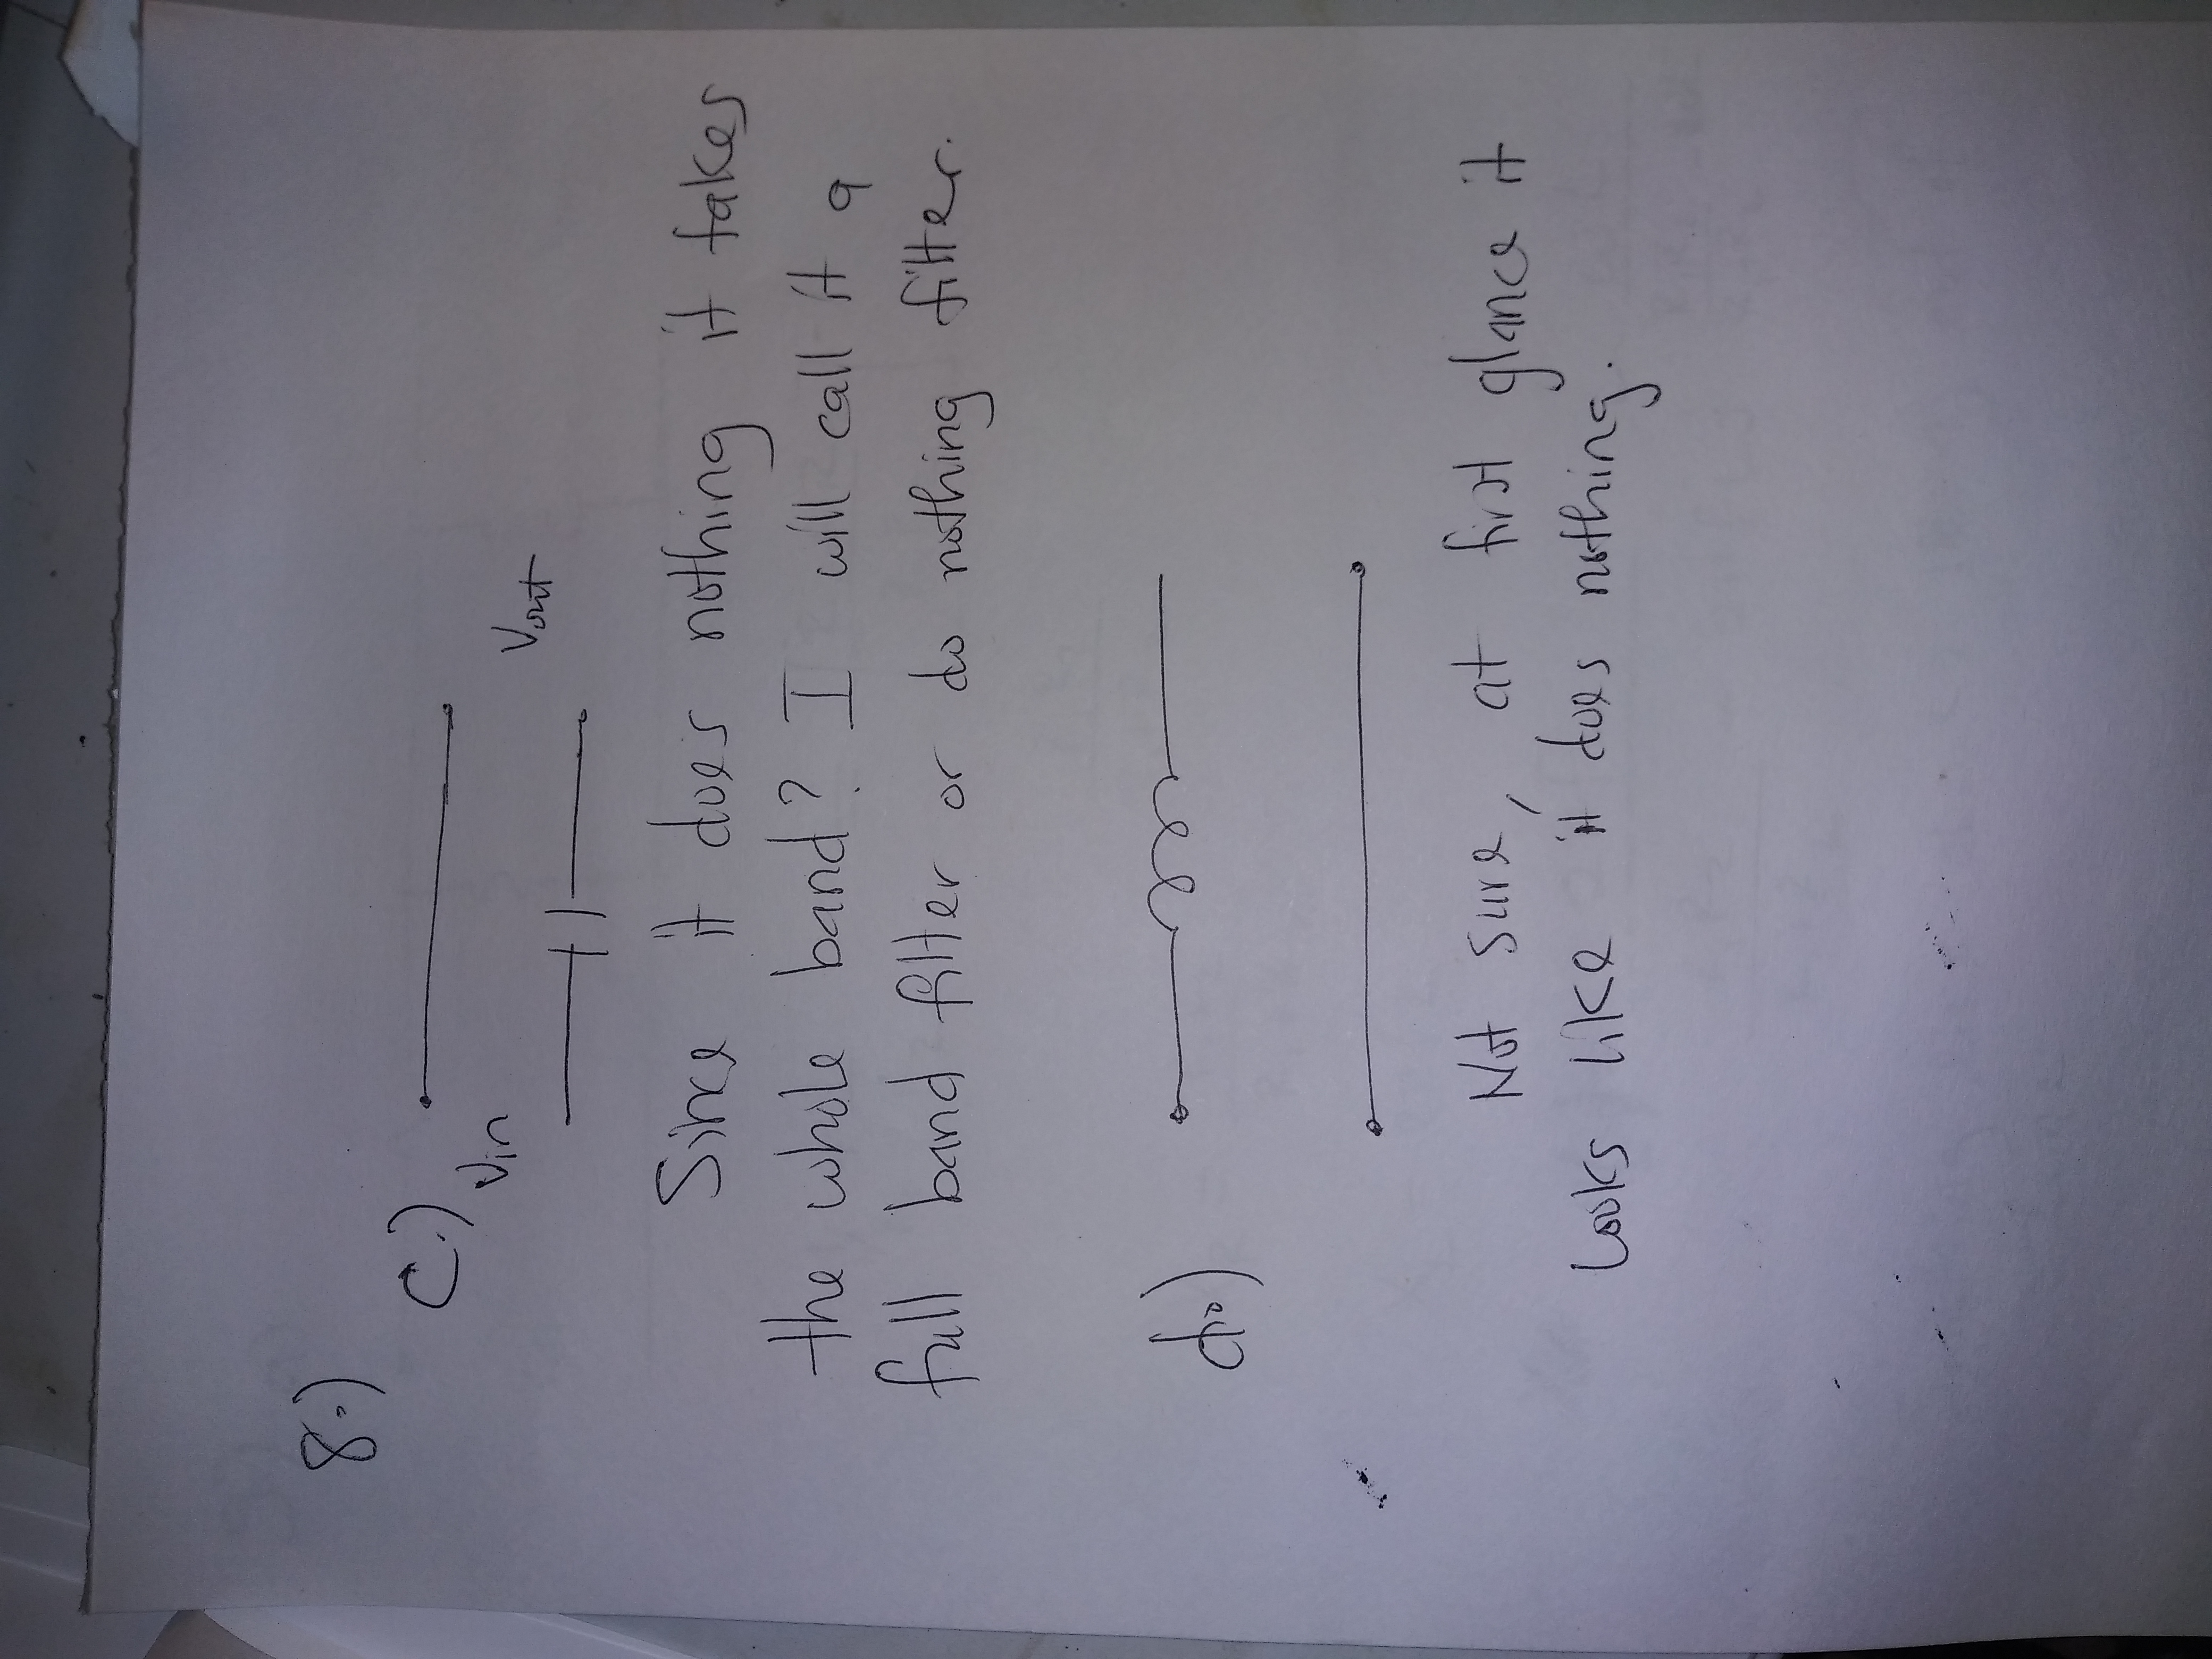 8.)
C.)
Vin
Vout
Since it does nothing it takes
the whole band? I will call it a
full band filter or do nothing filter.
d.)
Not sure, at first glance it
looks like it does nothing.